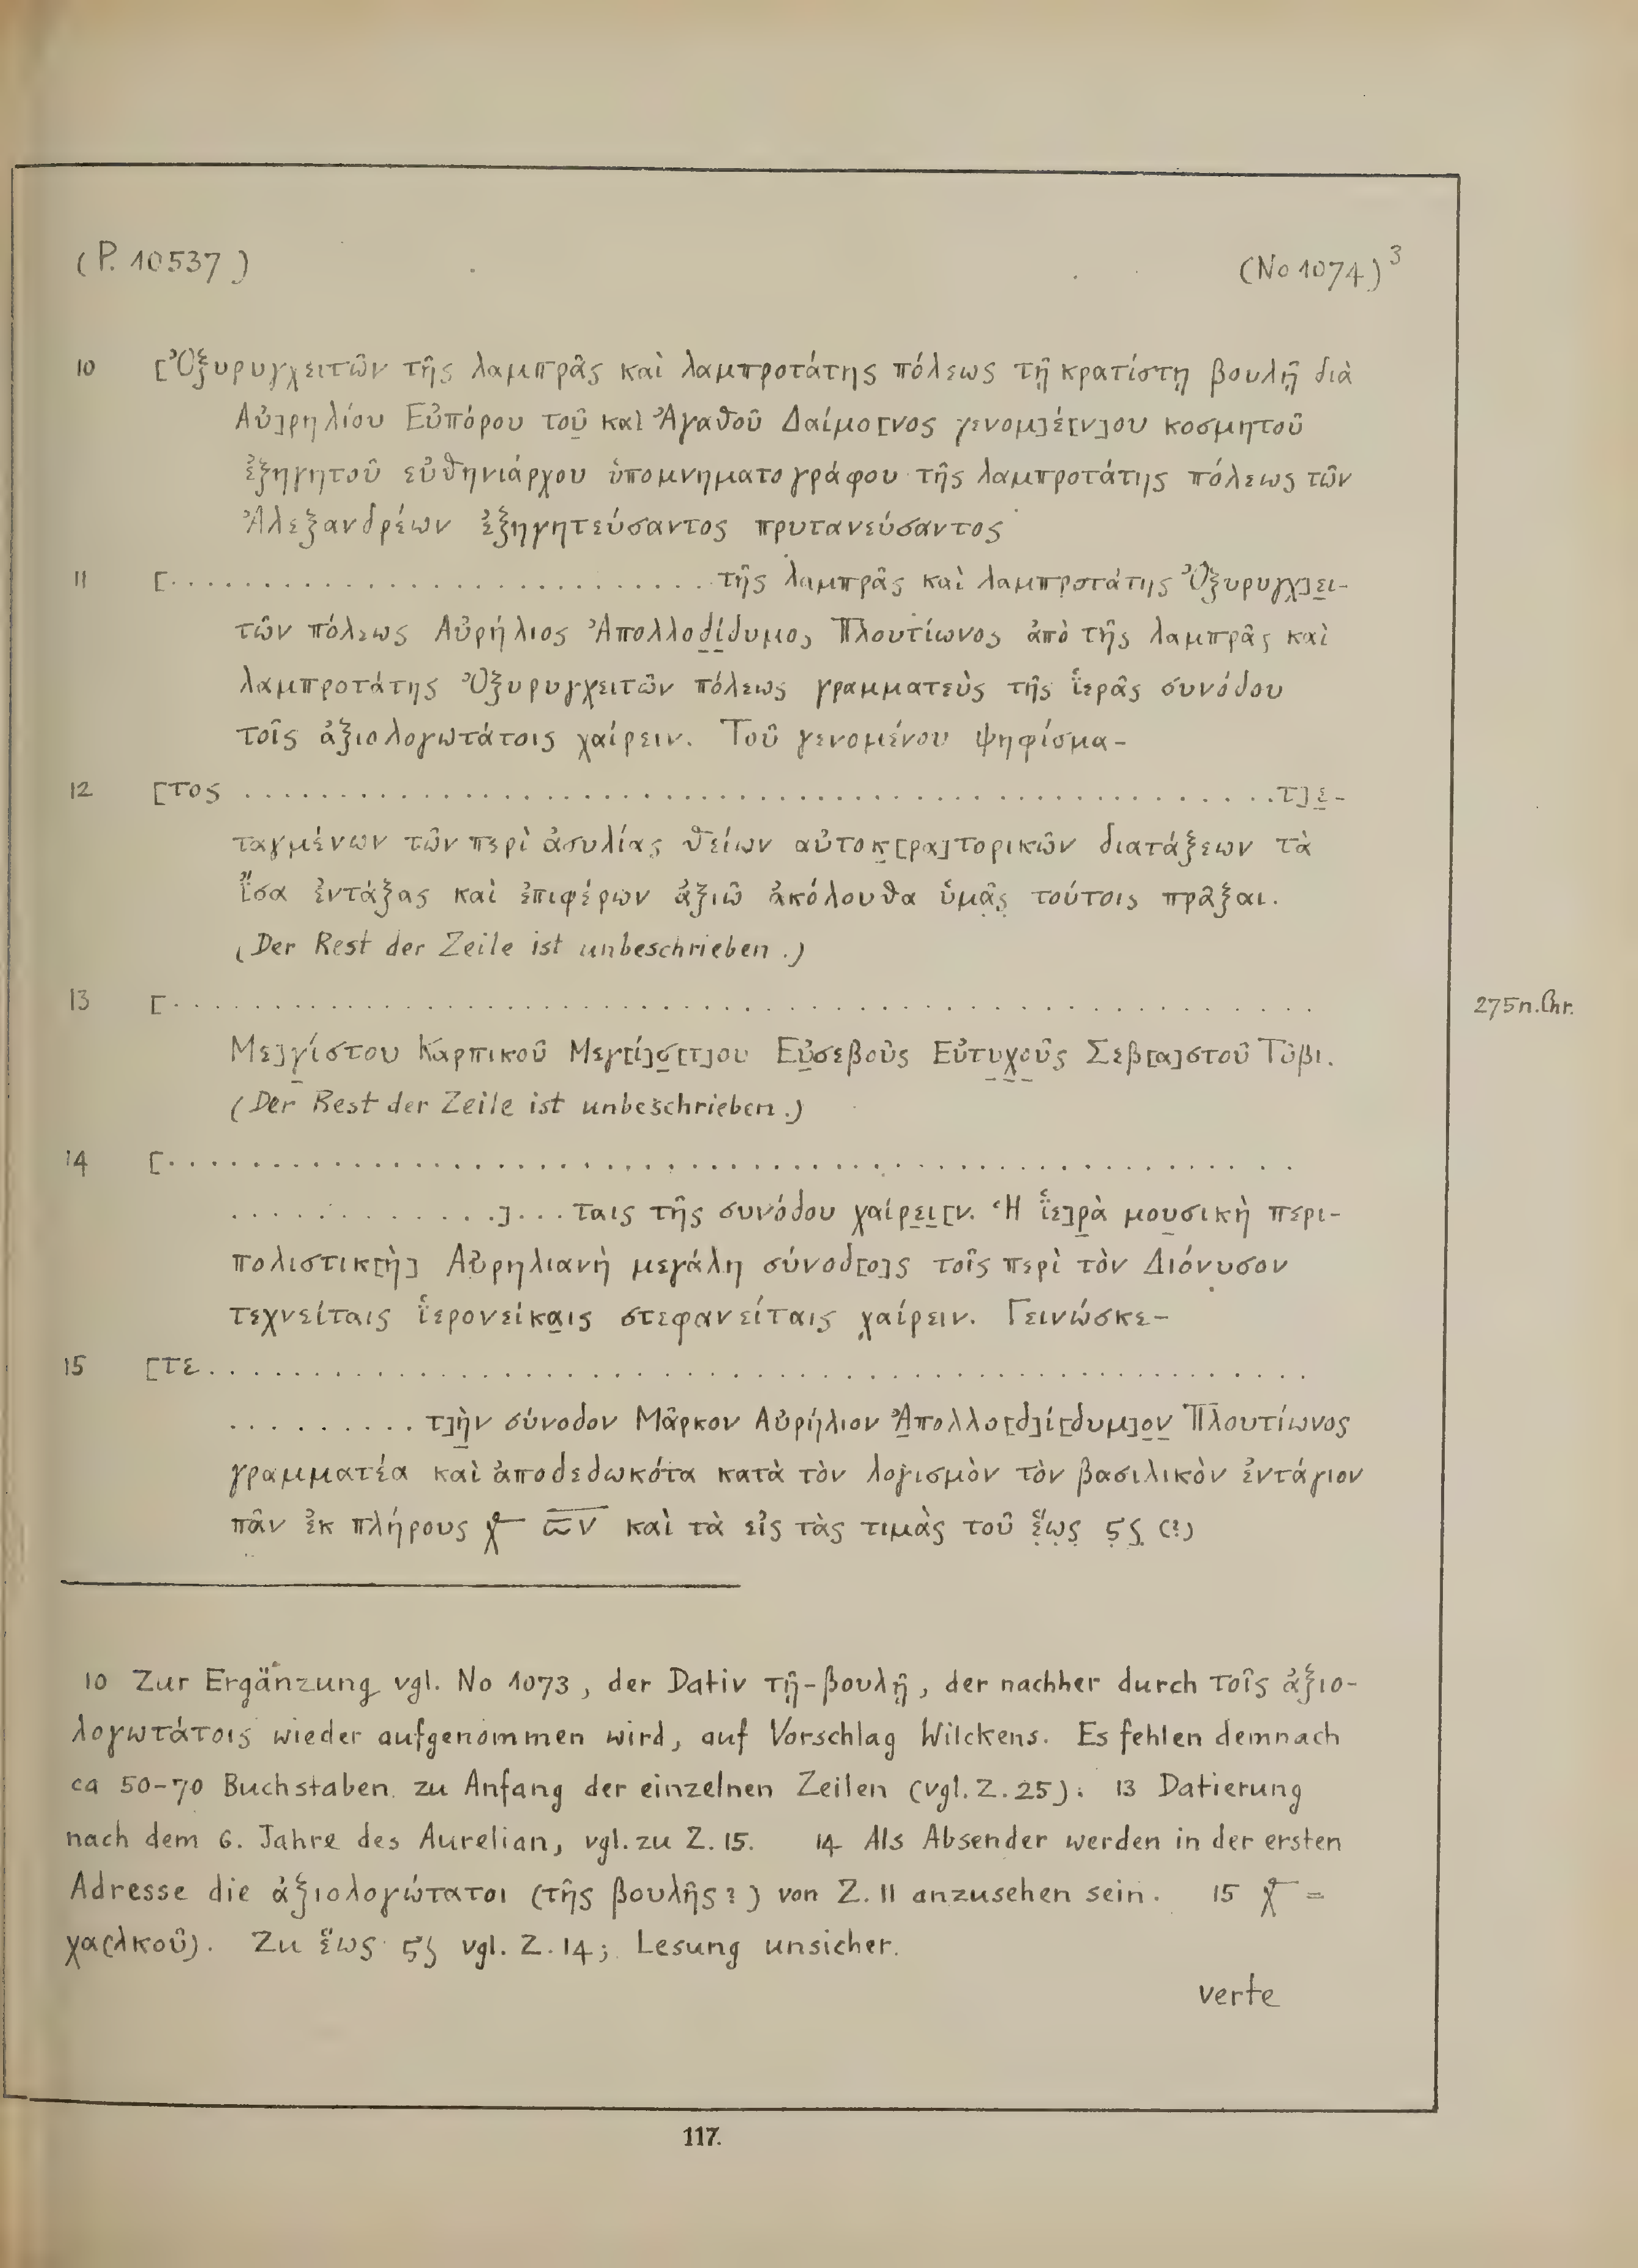 (P. 10537) (No 1074)³
10 [Ὀξυρυγχειτῶν τῆς λαμπρᾶς καὶ λαμπροτάτης πόλεως τῇ κρατίστῃ βουλῇ διὰ
Αὐ]ρηλίου Εὐπόρου τοῦ καὶ Ἀγαθοῦ Δαίμο[νος γενομ]έ[ν]ου κοσμητοῦ
ἐξηγητοῦ εὐθηνιάρχου ὑπομνηματογράφου τῆς λαμπροτάτης πόλεως τῶν
Ἀλεξανδρέων ἐξηγητεύσαντος πρυτανεύσαντος
11 [. . . . . . . . . . . . . . . . . . . . . . . . . . . τῆς λαμπρᾶς καὶ λαμπροτάτης Ὀξυρυγχ]ε̣ι-
τῶν πόλεως Αὐρήλιος Ἀπολλοδ̣ί̣δυμος Πλουτίωνος ἀπὸ τῆς λαμπρᾶς καὶ
λαμπροτάτης Ὀξυρυγχειτῶν πόλεως γραμματεὺς τῆς ἱερᾶς συνόδου
τοῖς ἀξιολογωτάτοις χαίρειν. Τοῦ γενομένου ψηφίσμα-
12 [τος . . . . . . . . . . . . . . . . . . . . . . . . . . . . . . . . . . . . . . . . . . τ]ε̣-
ταγμένων τῶν περὶ ἀσυλίας θείων αὐτοκ̣[ρα]τορικῶν διατάξεων τὰ
ἴσα ἐντάξας καὶ ἐπιφέρων ἀξιῶ ἀκόλουθα ὑμᾶ̣ς̣ τούτοις πρᾶξαι.
(Der Rest der Zeile ist unbeschrieben.)
13 [. . . . . . . . . . . . . . . . . . . . . . . . . . . . . . . . . . . . . . . . . . 275 n. Chr.
Με]γ̣ίστου Καρπικοῦ Μεγ[ί]σ̣[τ]ου Εὐ̣σεβοῦς Εὐτυ̣χ̣ο̣ῦς Σεβ[α]στοῦ Τῦβι.
(Der Rest der Zeile ist unbeschrieben.)
14 [. . . . . . . . . . . . . . . . . . . . . . . . . . . . . . . . . . . . . . . . . .
. . . . . . . . . . . . .] . . . ταις τῆς συνόδου χαίρε̣ι̣[ν. Ἡ ἱε]ρ̣ὰ μου̣σικὴ περι-
πολιστικ[ὴ] Αὐρηλιανὴ μεγάλη σύνοδ[ο]ς τοῖς περὶ τὸν Διόνυσον
τεχνείταις ἱερονείκα̣ις στεφανείταις χαίρειν. Γεινώσκε-
15 [τε . . . . . . . . . . . . . . . . . . . . . . . . . . . . . . . . . . . . . . . .
. . . . . . . . . . τ]ὴ̣ν σύνοδον Μᾶρκον Αὐρήλιον Ἀ̣πολλο[δ]ί[δυμ]ο̣ν̣ Πλουτίωνος
γραμματέα καὶ ἀποδεδωκότα κατὰ τὸν λογισμὸν τὸν βασιλικὸν ἐντάγιον
πᾶν ἐκ πλήρους καὶ τὰ εἰς τὰς τιμὰς τοῦ ἕ̣ω̣ς̣ ϛ̣ϛ̣ (?)
10 Zur Ergänzung vgl. No 1073, der Dativ τῇ-βουλῇ, der nachher durch τοῖς ἀξιο-
λογωτάτοις wieder aufgenommen wird, auf Vorschlag Wilckens. Es fehlen demnach
ca 50-70 Buchstaben zu Anfang der einzelnen Zeilen (vgl. Z. 25). 13 Datierung
nach dem 6. Jahre des Aurelian, vgl. zu Z. 15. 14 Als Absender werden in der ersten
Adresse die ἀξιολογώτατοι (τῆς βουλῆς?) von Z. 11 anzusehen sein. 15 =
χα(λκοῦ). Zu ἕως ϛϛ vgl. Z. 14; Lesung unsicher.
verte
117.